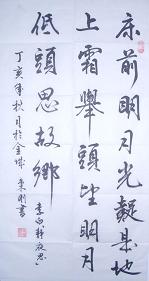 床前明月光疑是地
上霜舉頭望明月
低頭思故鄉 李白靜夜思
丁亥年秋月於金城 東明書